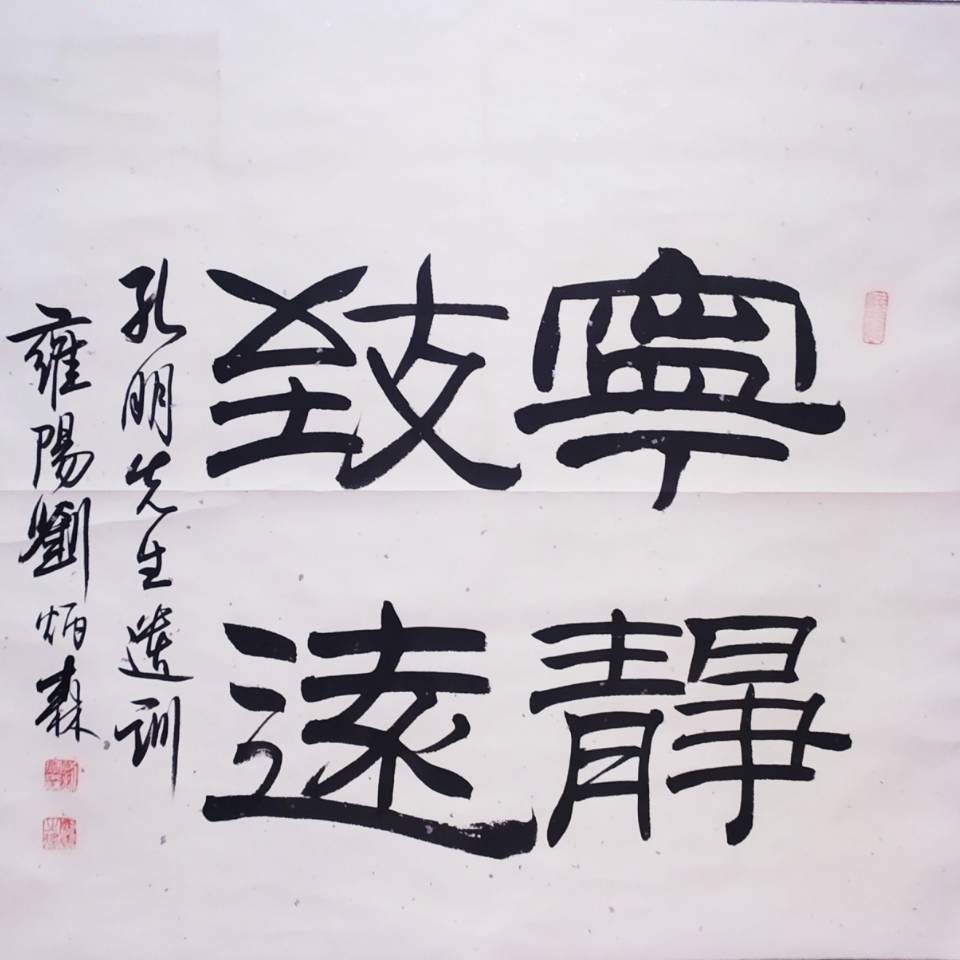 寧靜
致遠
孔明先生遺訓
雍陽劉炳森